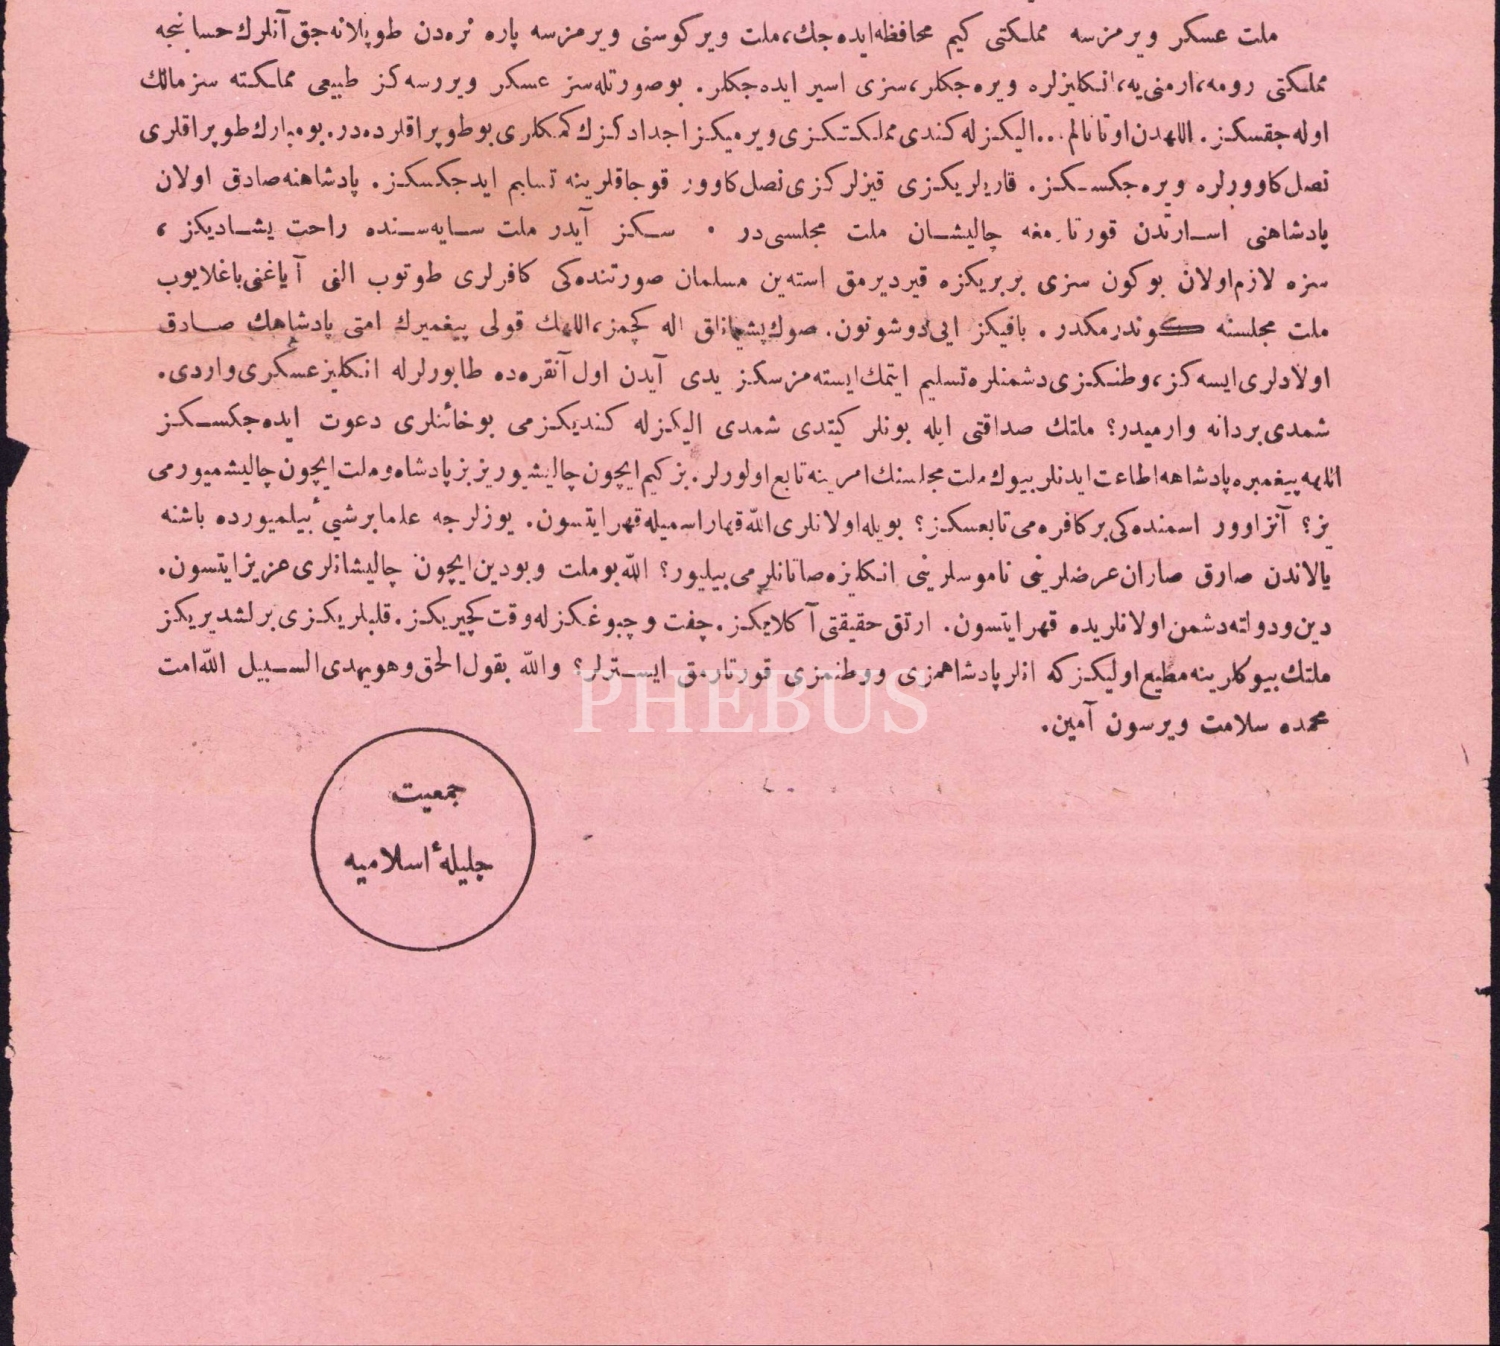 ملت عسكر ويرمزسه مملكتى كيم محافظه ايده جك، ملت ويركوسنى ويرمزسه پاره نره دن طوپلانه جق آنلرك حسابنجه
مملكتى رومه، ارمنى يه، انكليزلره ويره جكلر، سزى اسير ايده جكلر. بوصورتله سز عسكر ويررسه كز طبيعى مملكته سز مالك
اوله جقسكز. اللهدن اوتانالم... اليكزله كندى مملكتكزى ويرميكز اجدادكزك كمكلرى بوطوپراقلرده در. بومبارك طوپراقلرى
نصل كاوورلره ويره جكسكز. قاريلريكزى قيزلركزى نصل كاوور قوجاقلرينه تسليم ايدجكسكز. پادشاهنه صادق اولان
پادشاهنى اسارتدن قورتارمغه چاليشان ملت مجلسى در. سكز آيدر ملت سايه سنده راحت يشاديكز،
سزه لازم اولان بوكون سزى بربريكزه قيرديرمق استه ين مسلمان صورتنده كى كافرلرى طوتوب الى آياغنى باغلايوب
ملت مجلسنه كوندرمكدر. باقيكز ايى دوشونون. صوك پشيمانلق اله كچمز، اللهك قولى پيغمبرك امتى پادشاهك صادق
اولادلرى ايسه كز، وطنكزى دشمنلره تسليم ايتمك ايسته مزسكز يدى آيدن اول آنقره ده طابورلرله انكليز عسكرى واردى.
شمدى بردانه وارميدر؟ ملتك صداقتى ايله بونلر كيتدى شمدى اليكزله كنديكزمى بوخائنلرى دعوت ايده جكسكز
اللهه پيغمبره پادشاهه اطاعت ايدنلر بيوك ملت مجلسنك امرينه تابع اولورلر. بز كيم ايچون چاليشيوريز بز پادشاه وملت ايچون چاليشميورمى
يز؟ آنزاوور اسمنده كى بر كافره مى تابعسكز؟ بويله اولانلرى الله قهار اسميله قهر ايتسون. يوزلرجه علما برشيئ بيلميورده باشنه
يالاندن صارق صاران عرضلرينى ناموسلرينى انكليزه صاتانلرمى بيليور؟ الله بوملت وبودين ايچون چاليشانلرى عزيز ايتسون.
دين ودولته دشمن اولانلريده قهر ايتسون. ارتق حقيقتى آكلايكز. چفت وچبوغكزله وقت كچيريكز. قلبلريكزى برلشديريكز
ملتك بيوكلرينه مطيع اوليكزكه انلر پادشاهمزى ووطنمزى قورتارمق ايسترلر؟ والله يقول الحق وهو يهدى السبيل الله امت
محمده سلامت ويرسون آمين.
PHEBUS
جمعيت
جليلهٔ اسلاميه